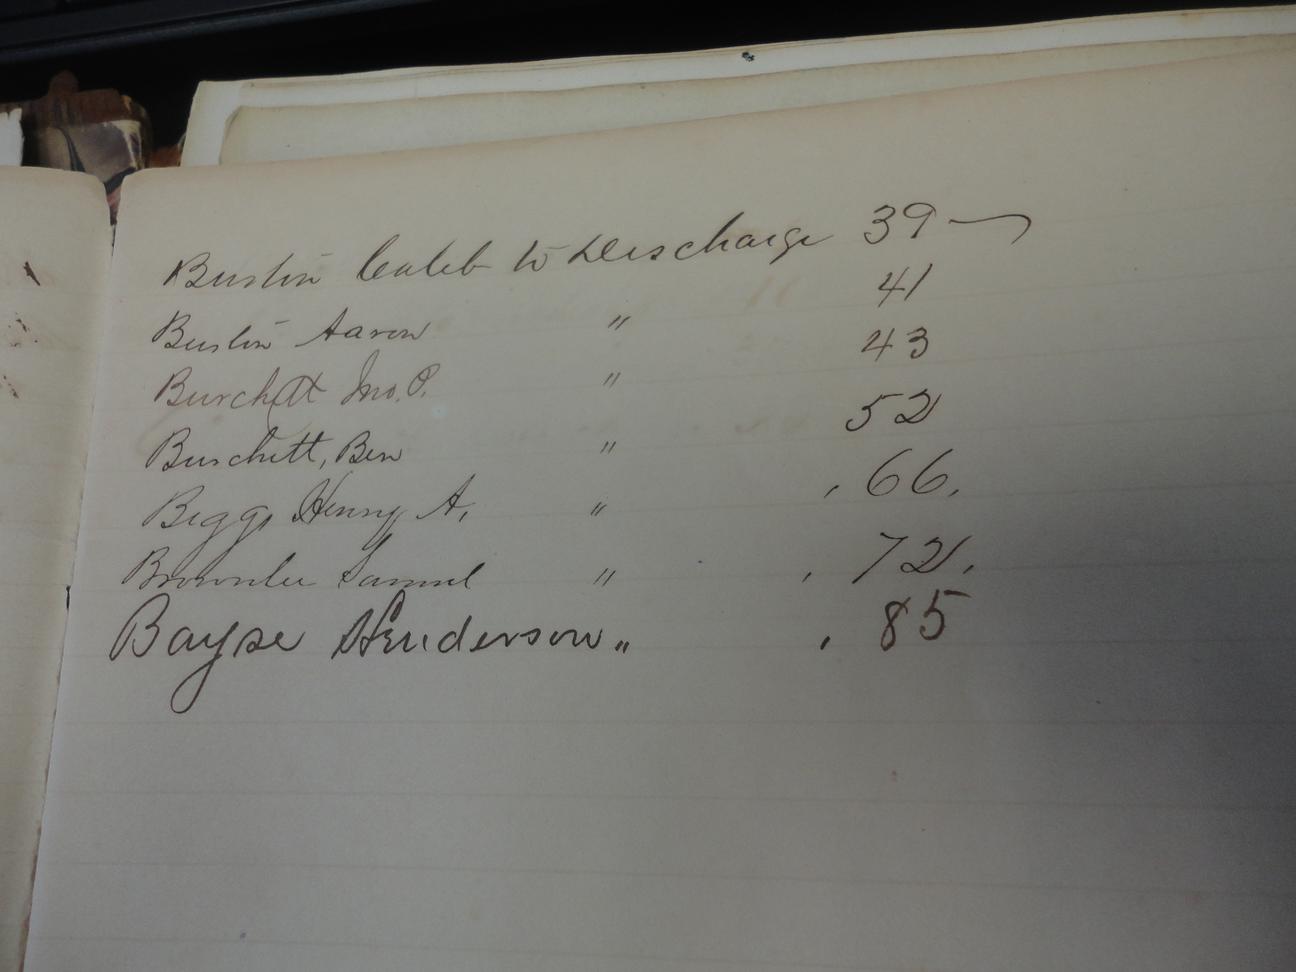 Burton Caleb to Discharge 39
Burton Aaron " 41
Burchett Jno. P. " 43
Burchett, Ben " 52
Beggs Henry A. " 66.
Brownlee Samuel " 72.
Bayse Henderson " 85